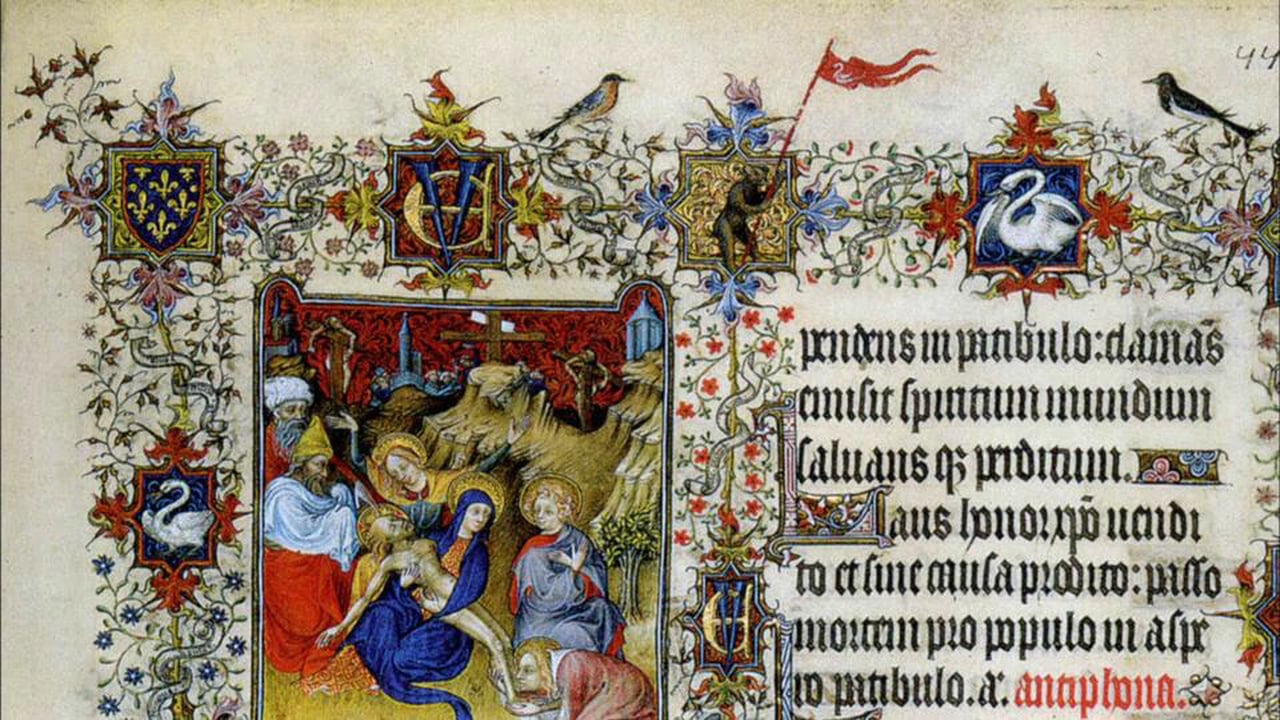 44
pendens in patibulo: clamãs
emisit spiritum mundum
saluans qꝫ perditum.
Laus honor xp̃o uendi
to et sine causa prodito: passo
mortem pro populo in aspe
ro patibulo. a. antiphona.